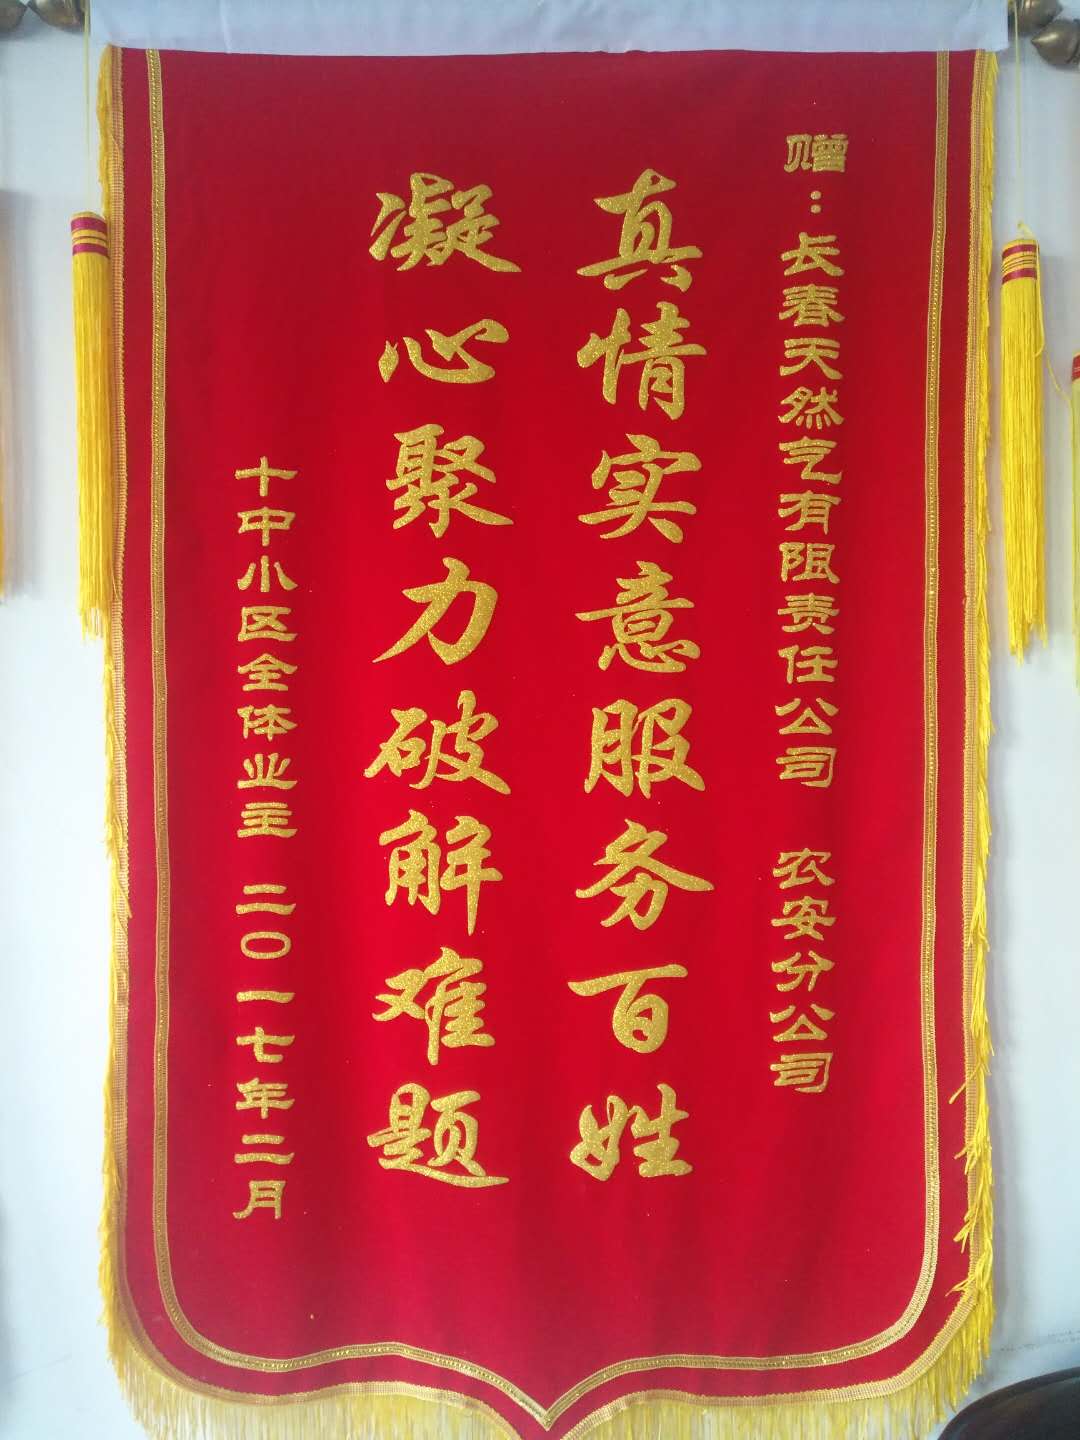 赠：长春天然气有阻责任公司 农安分公司
真情实意服务百姓
凝心聚力破解难题
十中小区全体业主 二〇一七年二月